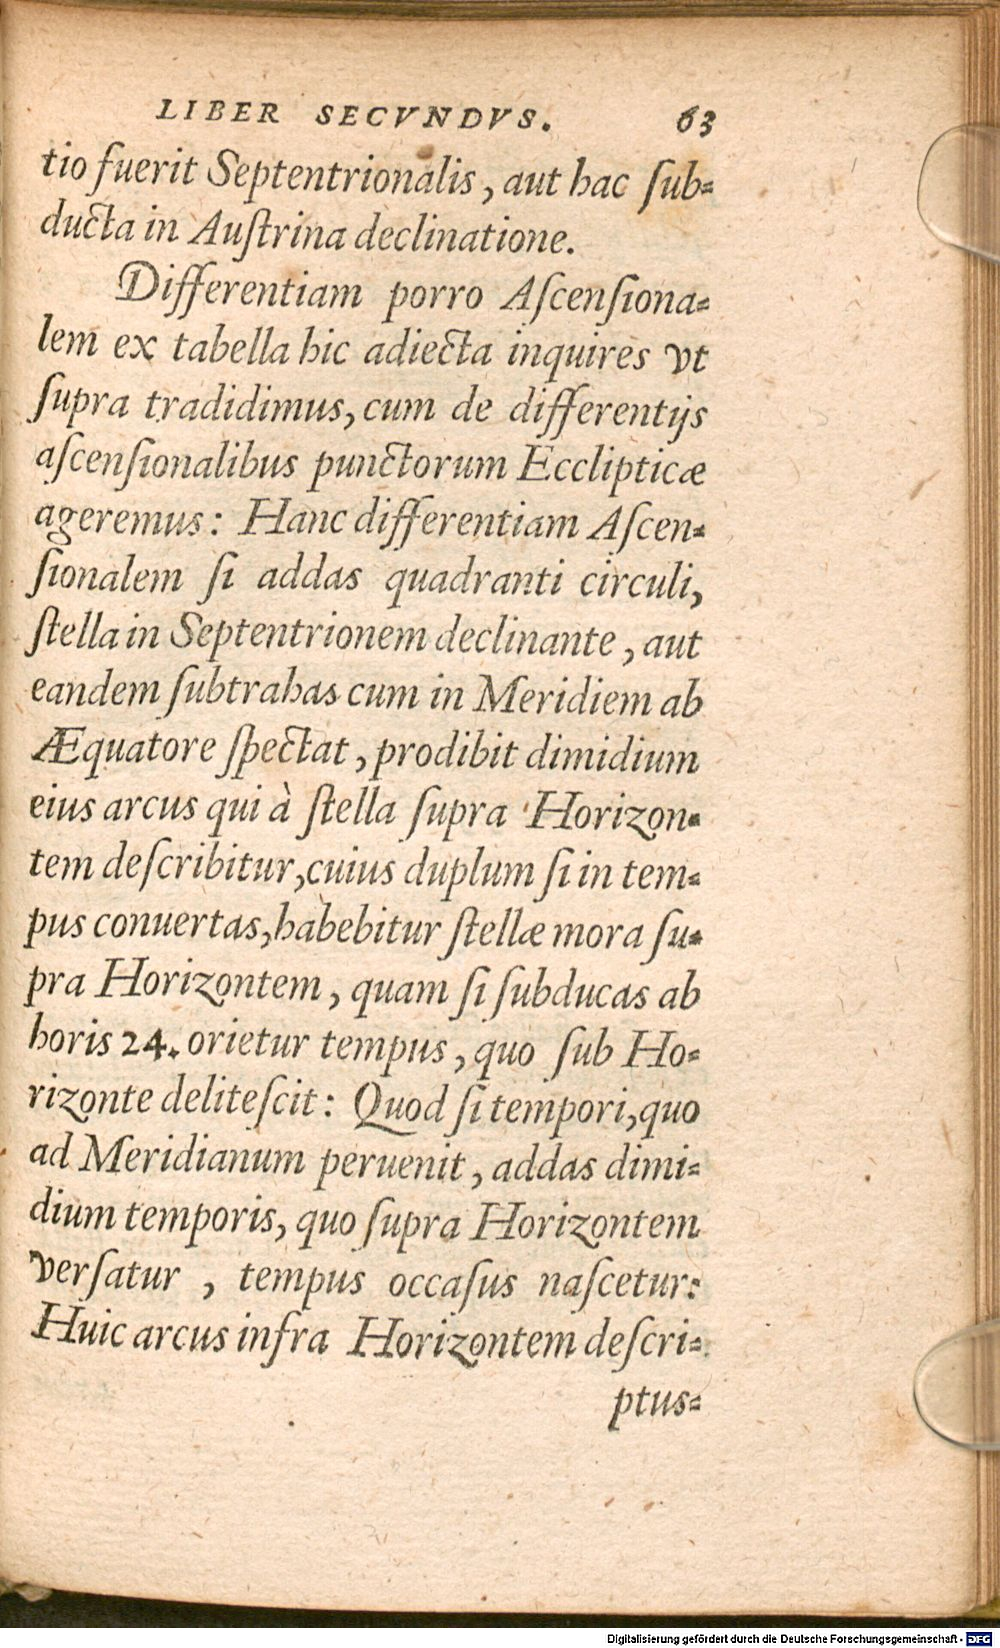 LIBER SECVNDVS. 63
tio fuerit Septentrionalis, aut hac ſub=
ducta in Auſtrina declinatione.
Differentiam porro Aſcenſiona=
lem ex tabella hic adiecta inquires vt
ſupra tradidimus, cum de differentijs
aſcenſionalibus punctorum Ecclipticæ
ageremus: Hanc differentiam Aſcen=
ſionalem ſi addas quadranti circuli,
ſtella in Septentrionem declinante, aut
eandem ſubtrahas cum in Meridiem ab
Æquatore ſpectat, prodibit dimidium
eius arcus qui à ſtella ſupra Horizon=
tem deſcribitur, cuius duplum ſi in tem=
pus conuertas, habebitur ſtellæ mora ſu=
pra Horizontem, quam ſi ſubducas ab
horis 24. orietur tempus, quo ſub Ho=
rizonte deliteſcit: Quod ſi tempori, quo
ad Meridianum peruenit, addas dimi=
dium temporis, quo ſupra Horizontem
verſatur, tempus occaſus naſcetur:
Huic arcus infra Horizontem deſcri=
ptus=
Digitalisierung gefördert durch die Deutsche Forschungsgemeinschaft - DFG